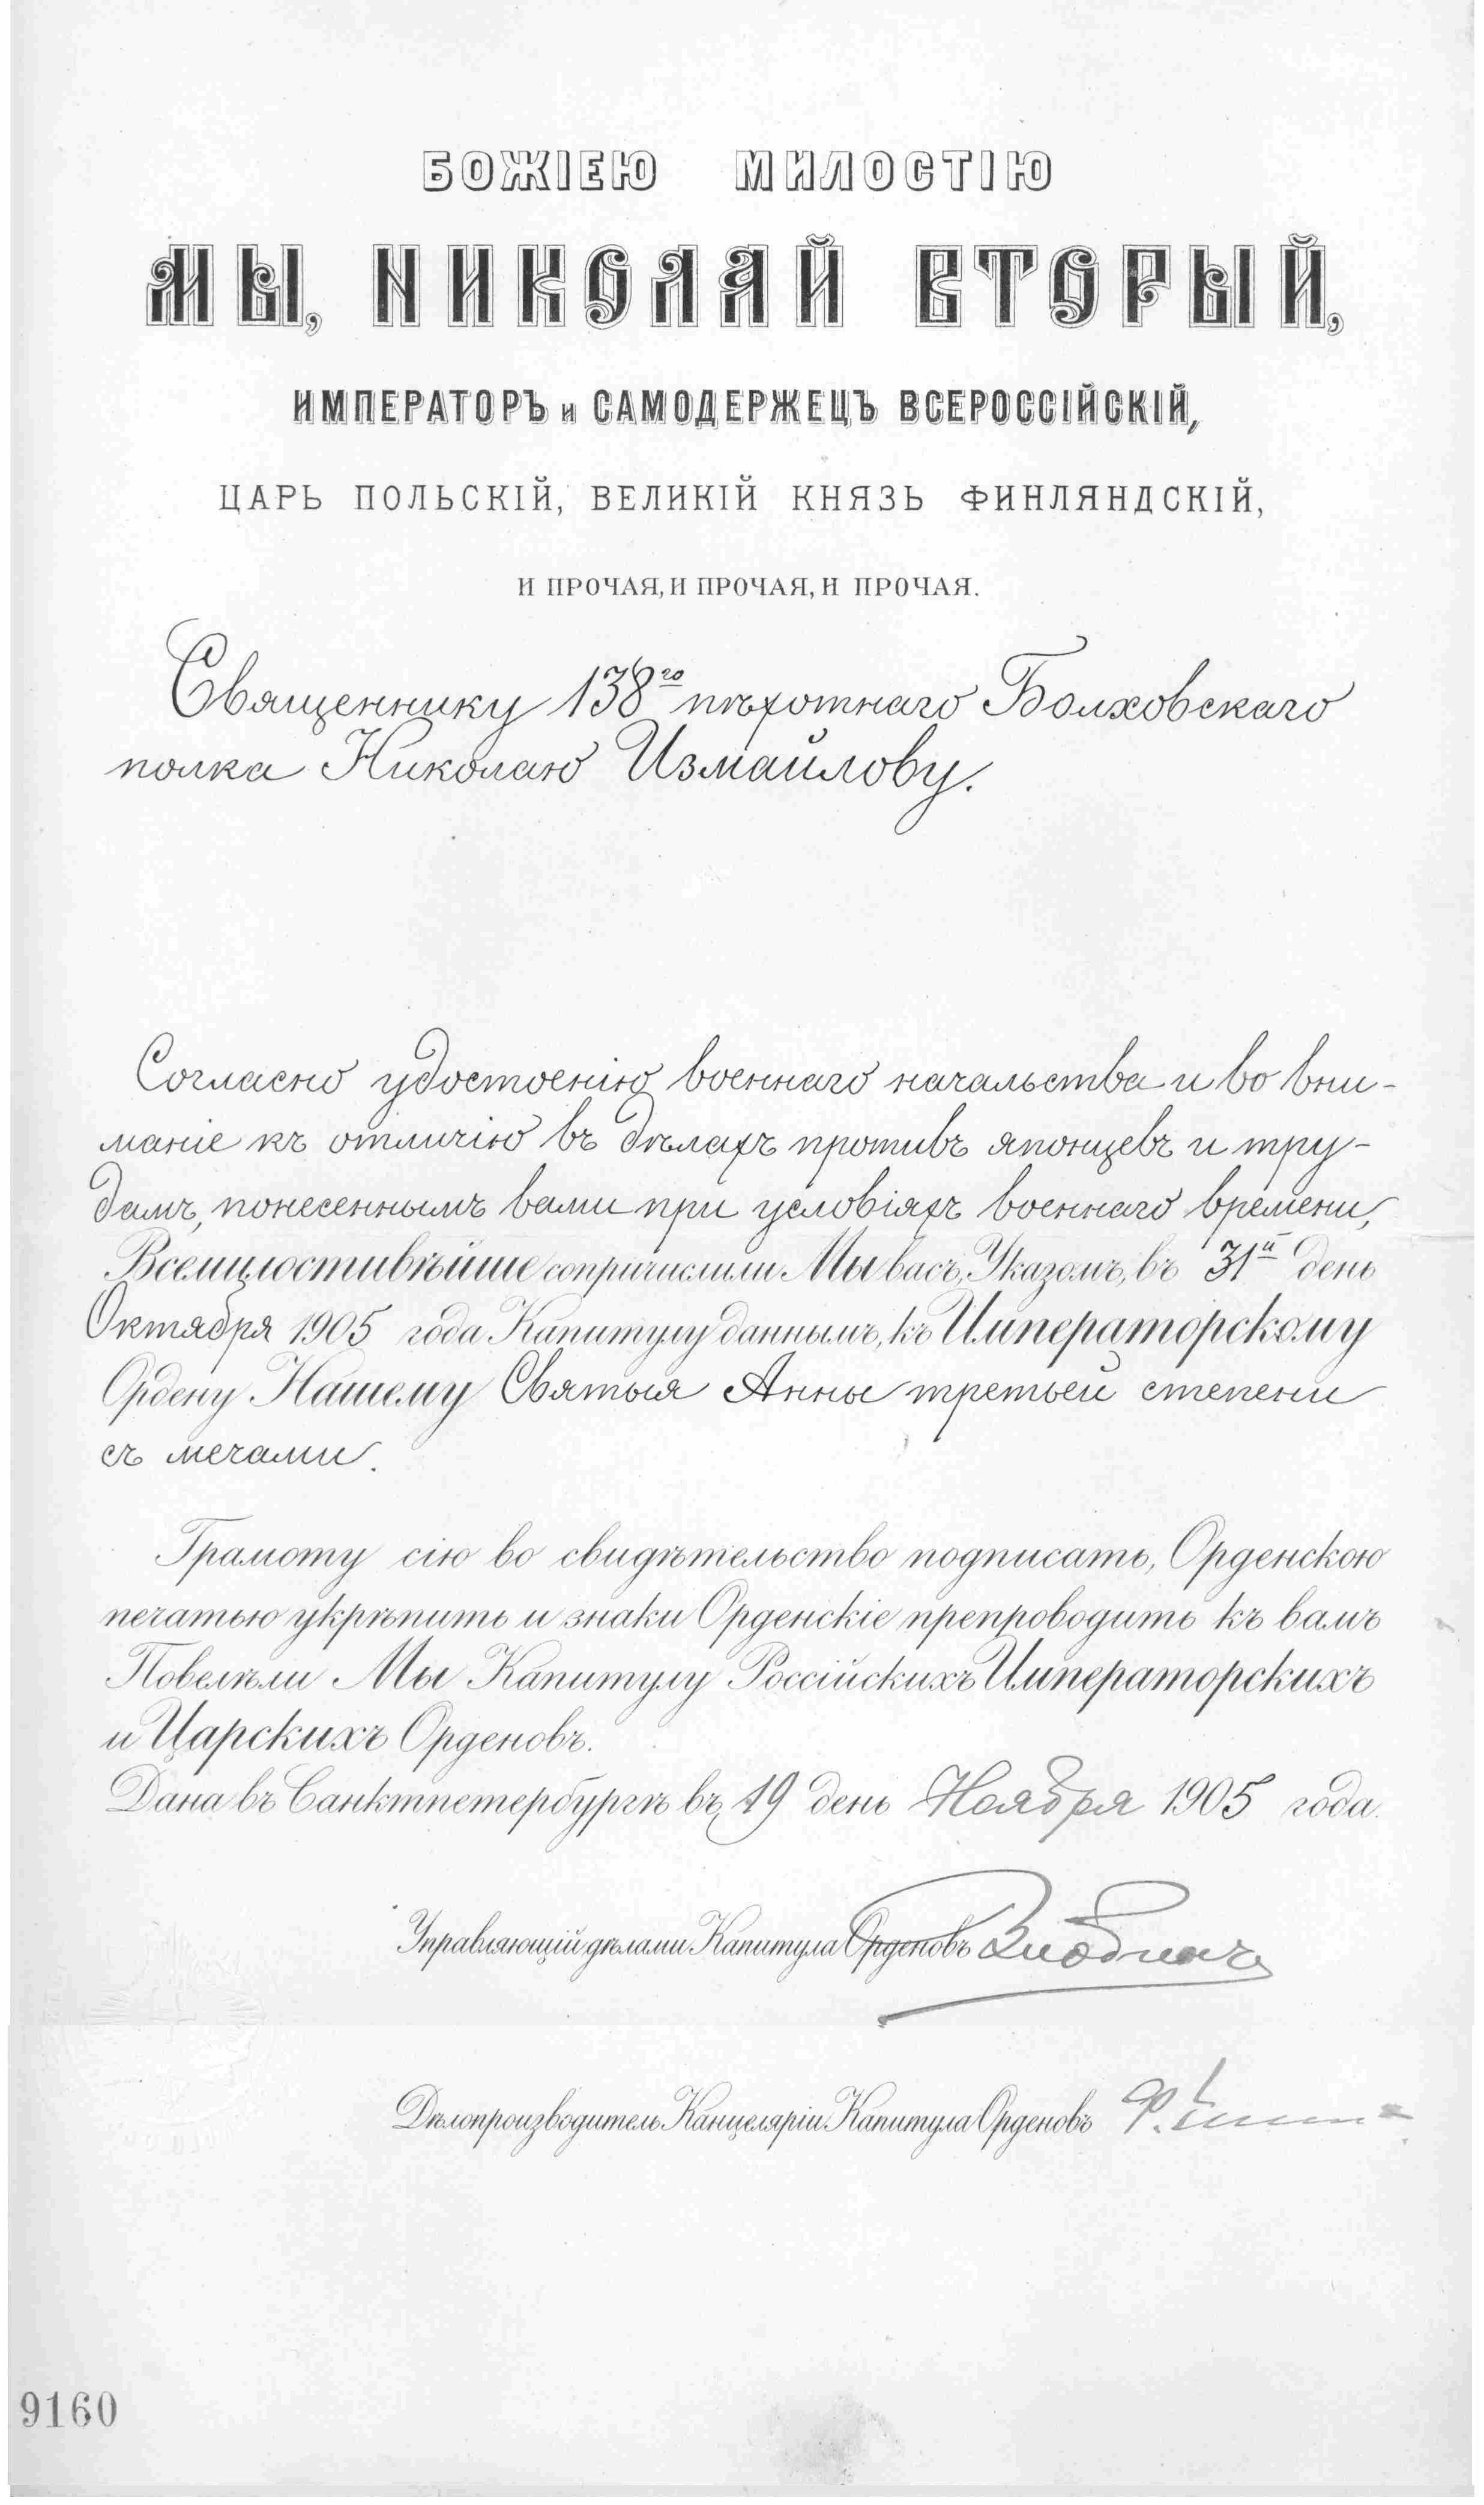 БОЖІЕЮ МИЛОСТІЮ
МЫ, НИКОЛАЙ ВТОРЫЙ,
ИМПЕРАТОРЪ и САМОДЕРЖЕЦЪ ВСЕРОССІЙСКІЙ,
ЦАРЬ ПОЛЬСКІЙ, ВЕЛИКІЙ КНЯЗЬ ФИНЛЯНДСКІЙ,
И ПРОЧАЯ, И ПРОЧАЯ, И ПРОЧАЯ.
Священнику 138го пѣхотнаго Болховскаго
полка Николаю Измайлову.
Согласно удостоенію военнаго начальства и во вни-
маніе къ отличію въ дѣлахъ противъ японцевъ и тру-
дамъ, понесеннымъ вами при условіяхъ военнаго времени,
Всемилостивѣйше сопричислили Мы васъ, Указомъ, въ 31й день
Октября 1905 года Капитулу даннымъ, къ Императорскому
Ордену Нашему Святыя Анны третьей степени
съ мечами.
Грамоту сію во свидѣтельство подписать, Орденскою
печатью укрѣпить и знаки Орденскіе препроводить къ вамъ
Повелѣли Мы Капитулу Россійскихъ Императорскихъ
и Царскихъ Орденовъ.
Дана въ Санктпетербургѣ въ 19 день Ноября 1905 года.
Управляющій дѣлами Капитула Орденовъ
Дѣлопроизводитель Канцеляріи Капитула Орденовъ
9160